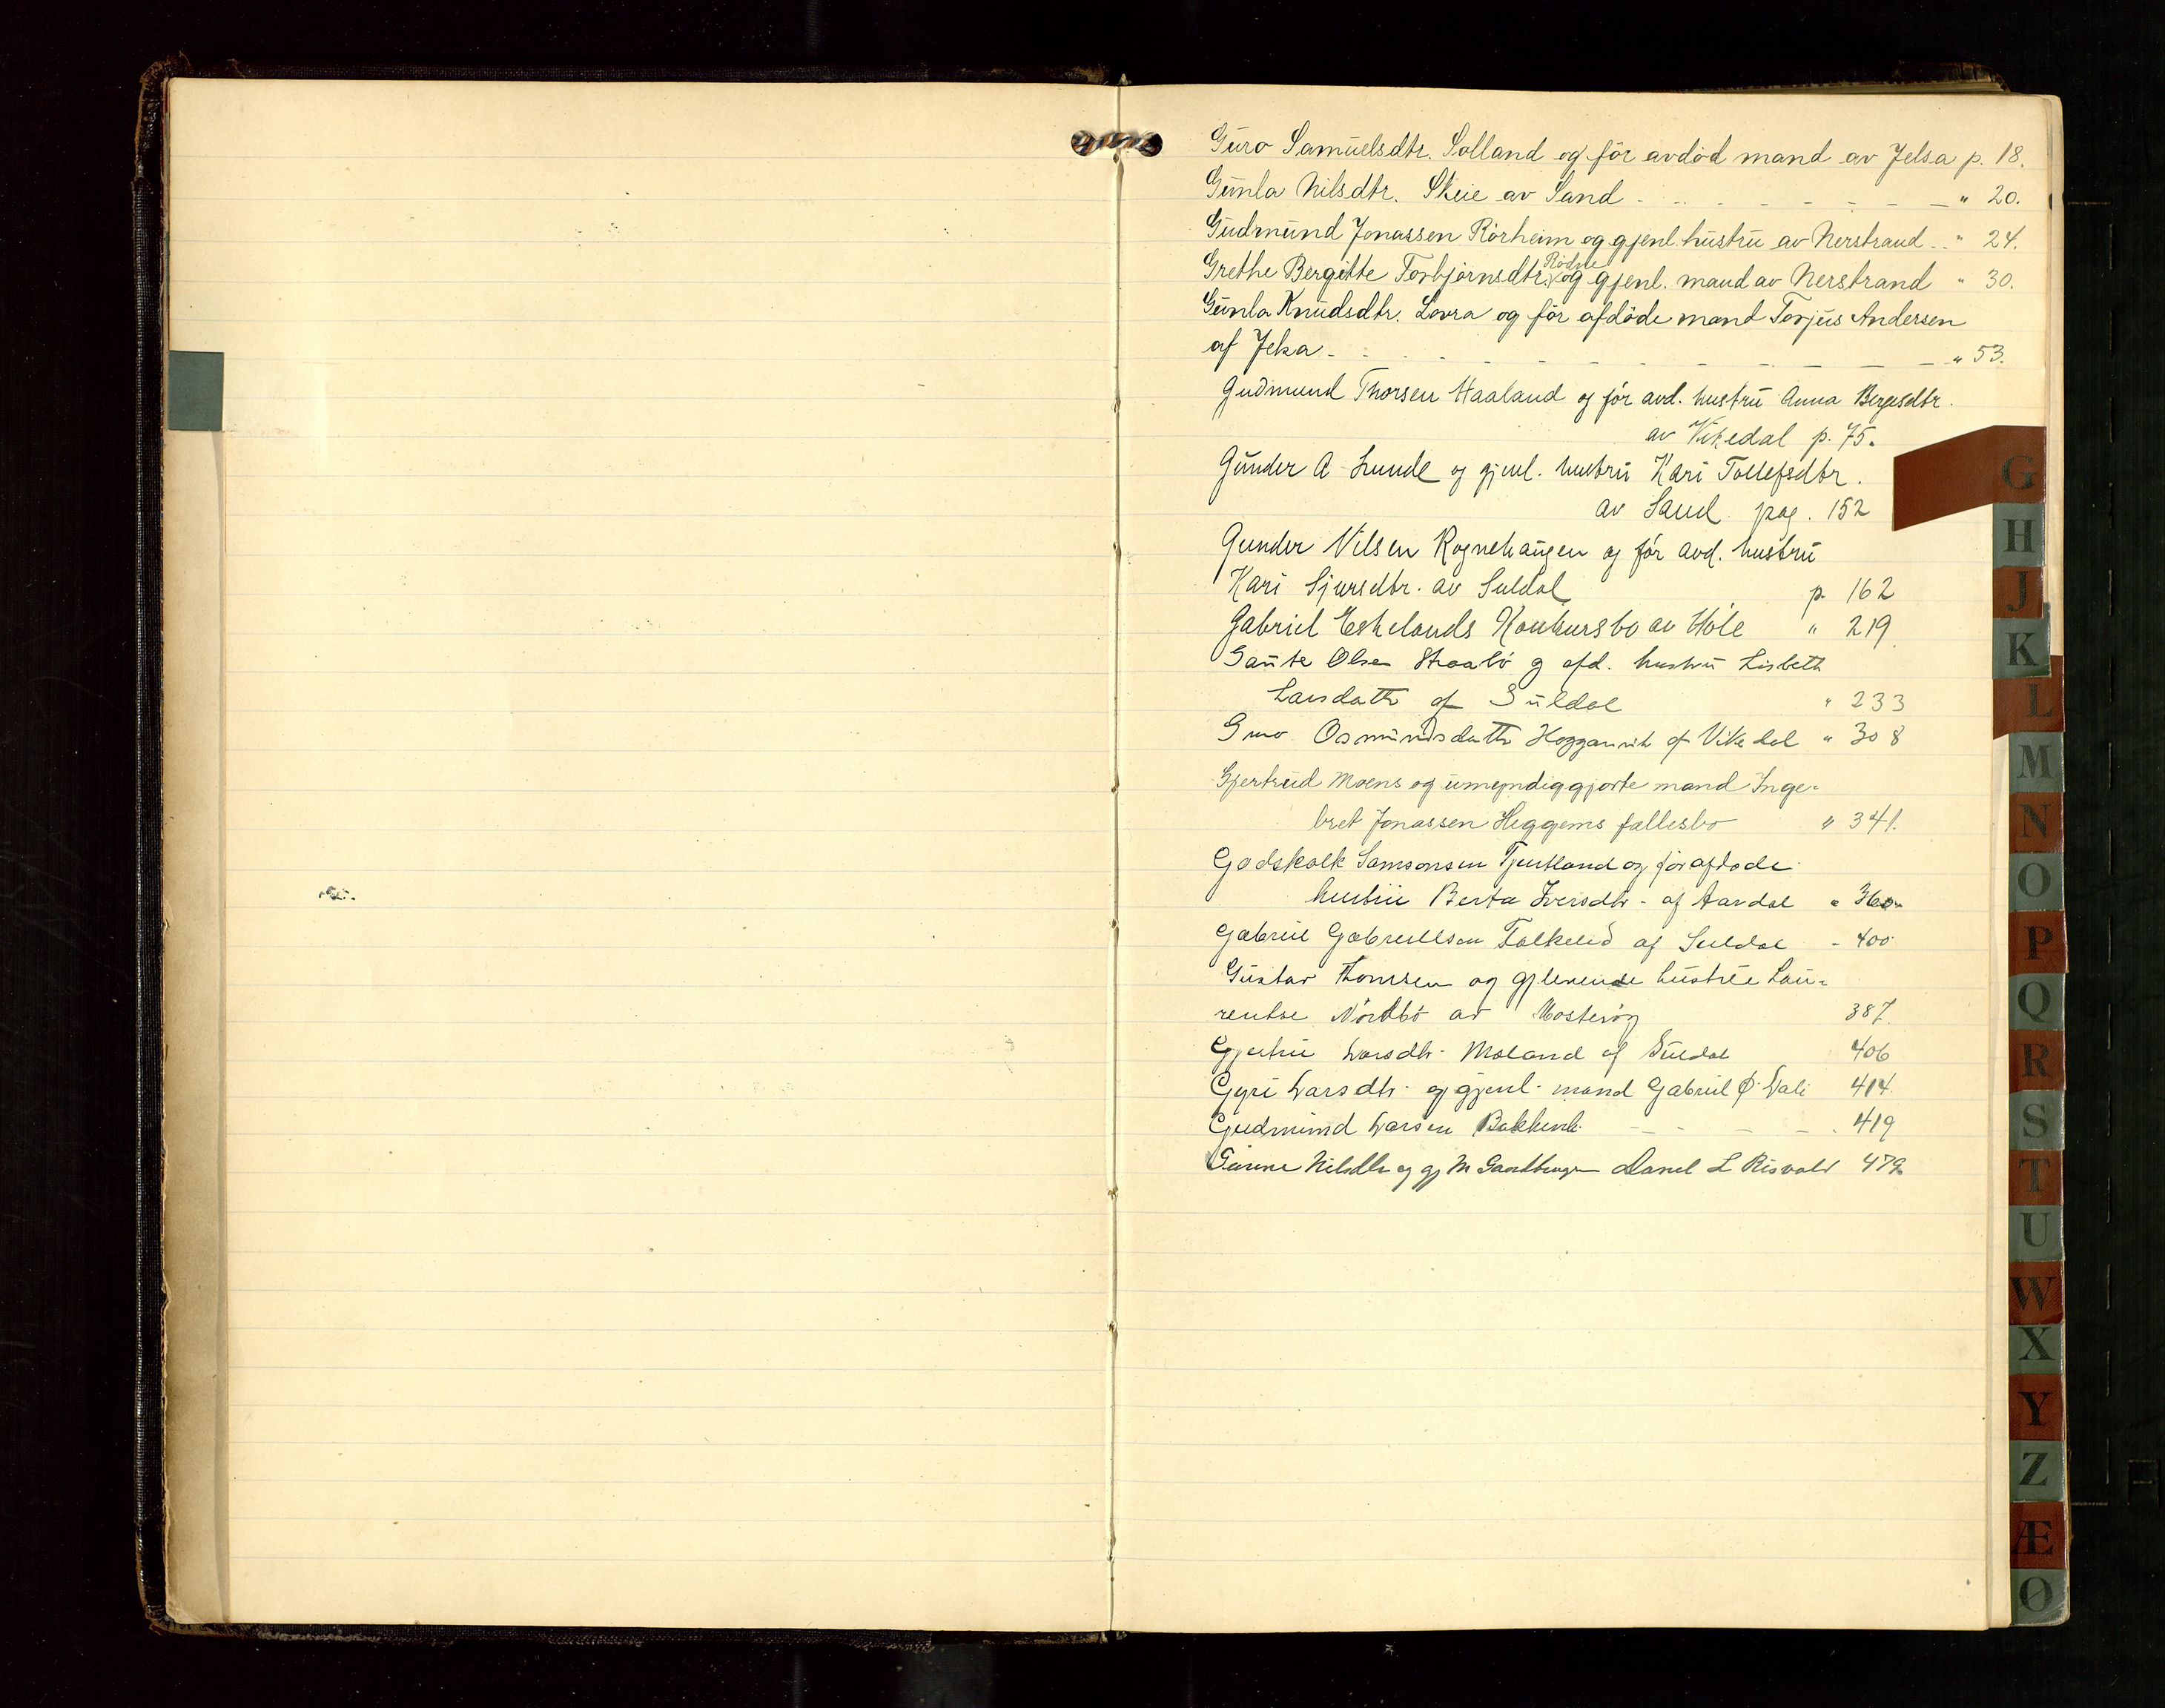 Guro Samuelsdtr. Solland og før avdød mand av Jelsa p. 18.
Gunla Nilsdtr. Skeie av Sand " 20.
Gudmund Jonassen Rørheim og gjenl. hustru av Nerstrand " 24.
Rødne
Grethe Bergitte Torbjørnsdtr. og gjenl. mand av Nerstrand " 30.
Gunla Knudsdtr. Lovra og før afdøde mand Torjus Andersen
af Jelsa " 53.
Gudmund Thorsen Haaland og før avd. hustru Anna Bergesdtr.
av Vikedal p. 75.
Gunder A Lunde og gjenl. hustru Kari Tollefsdtr.
av Sand pag. 152
Gunder Nilsen Rognehaugen og før avd. hustru
Kari Sjursdtr. av Suldal p. 162
Gabriel Eskelands Konkursbo av Høle " 219
Gaute Olsen Straabø og afd. hustru Lisbeth
Larsdatter af Suldal " 233
Guro Osmundsdatter af Vikedal " 308
Gjertrud Moens og umyndiggjorte mand Inge-
bret Jonassen Heggems fællesbo " 341.
Godskalk Samsonsen Tjentland og før afdøde
hustru Berta Iversdtr. af Aardal " 360
Gabriel Gabrielsen Falkeid af Suldal - 400
Gustav Thomsen og gjlevende hustru Lau-
rentse Nordbø av Mosterøy 387
Gjertru Larsdtr. Moland af Suldal 406
Gyri Larsdtr. og gjenl. mand Gabriel Ø. Vali 414
Gudmund Larsen 419
Nilsdtr og gj M Daniel L Risvold 479
G
H
J
K
L
M
N
O
P
Q
R
S
T
U
W
X
Y
Z
Æ
Ø